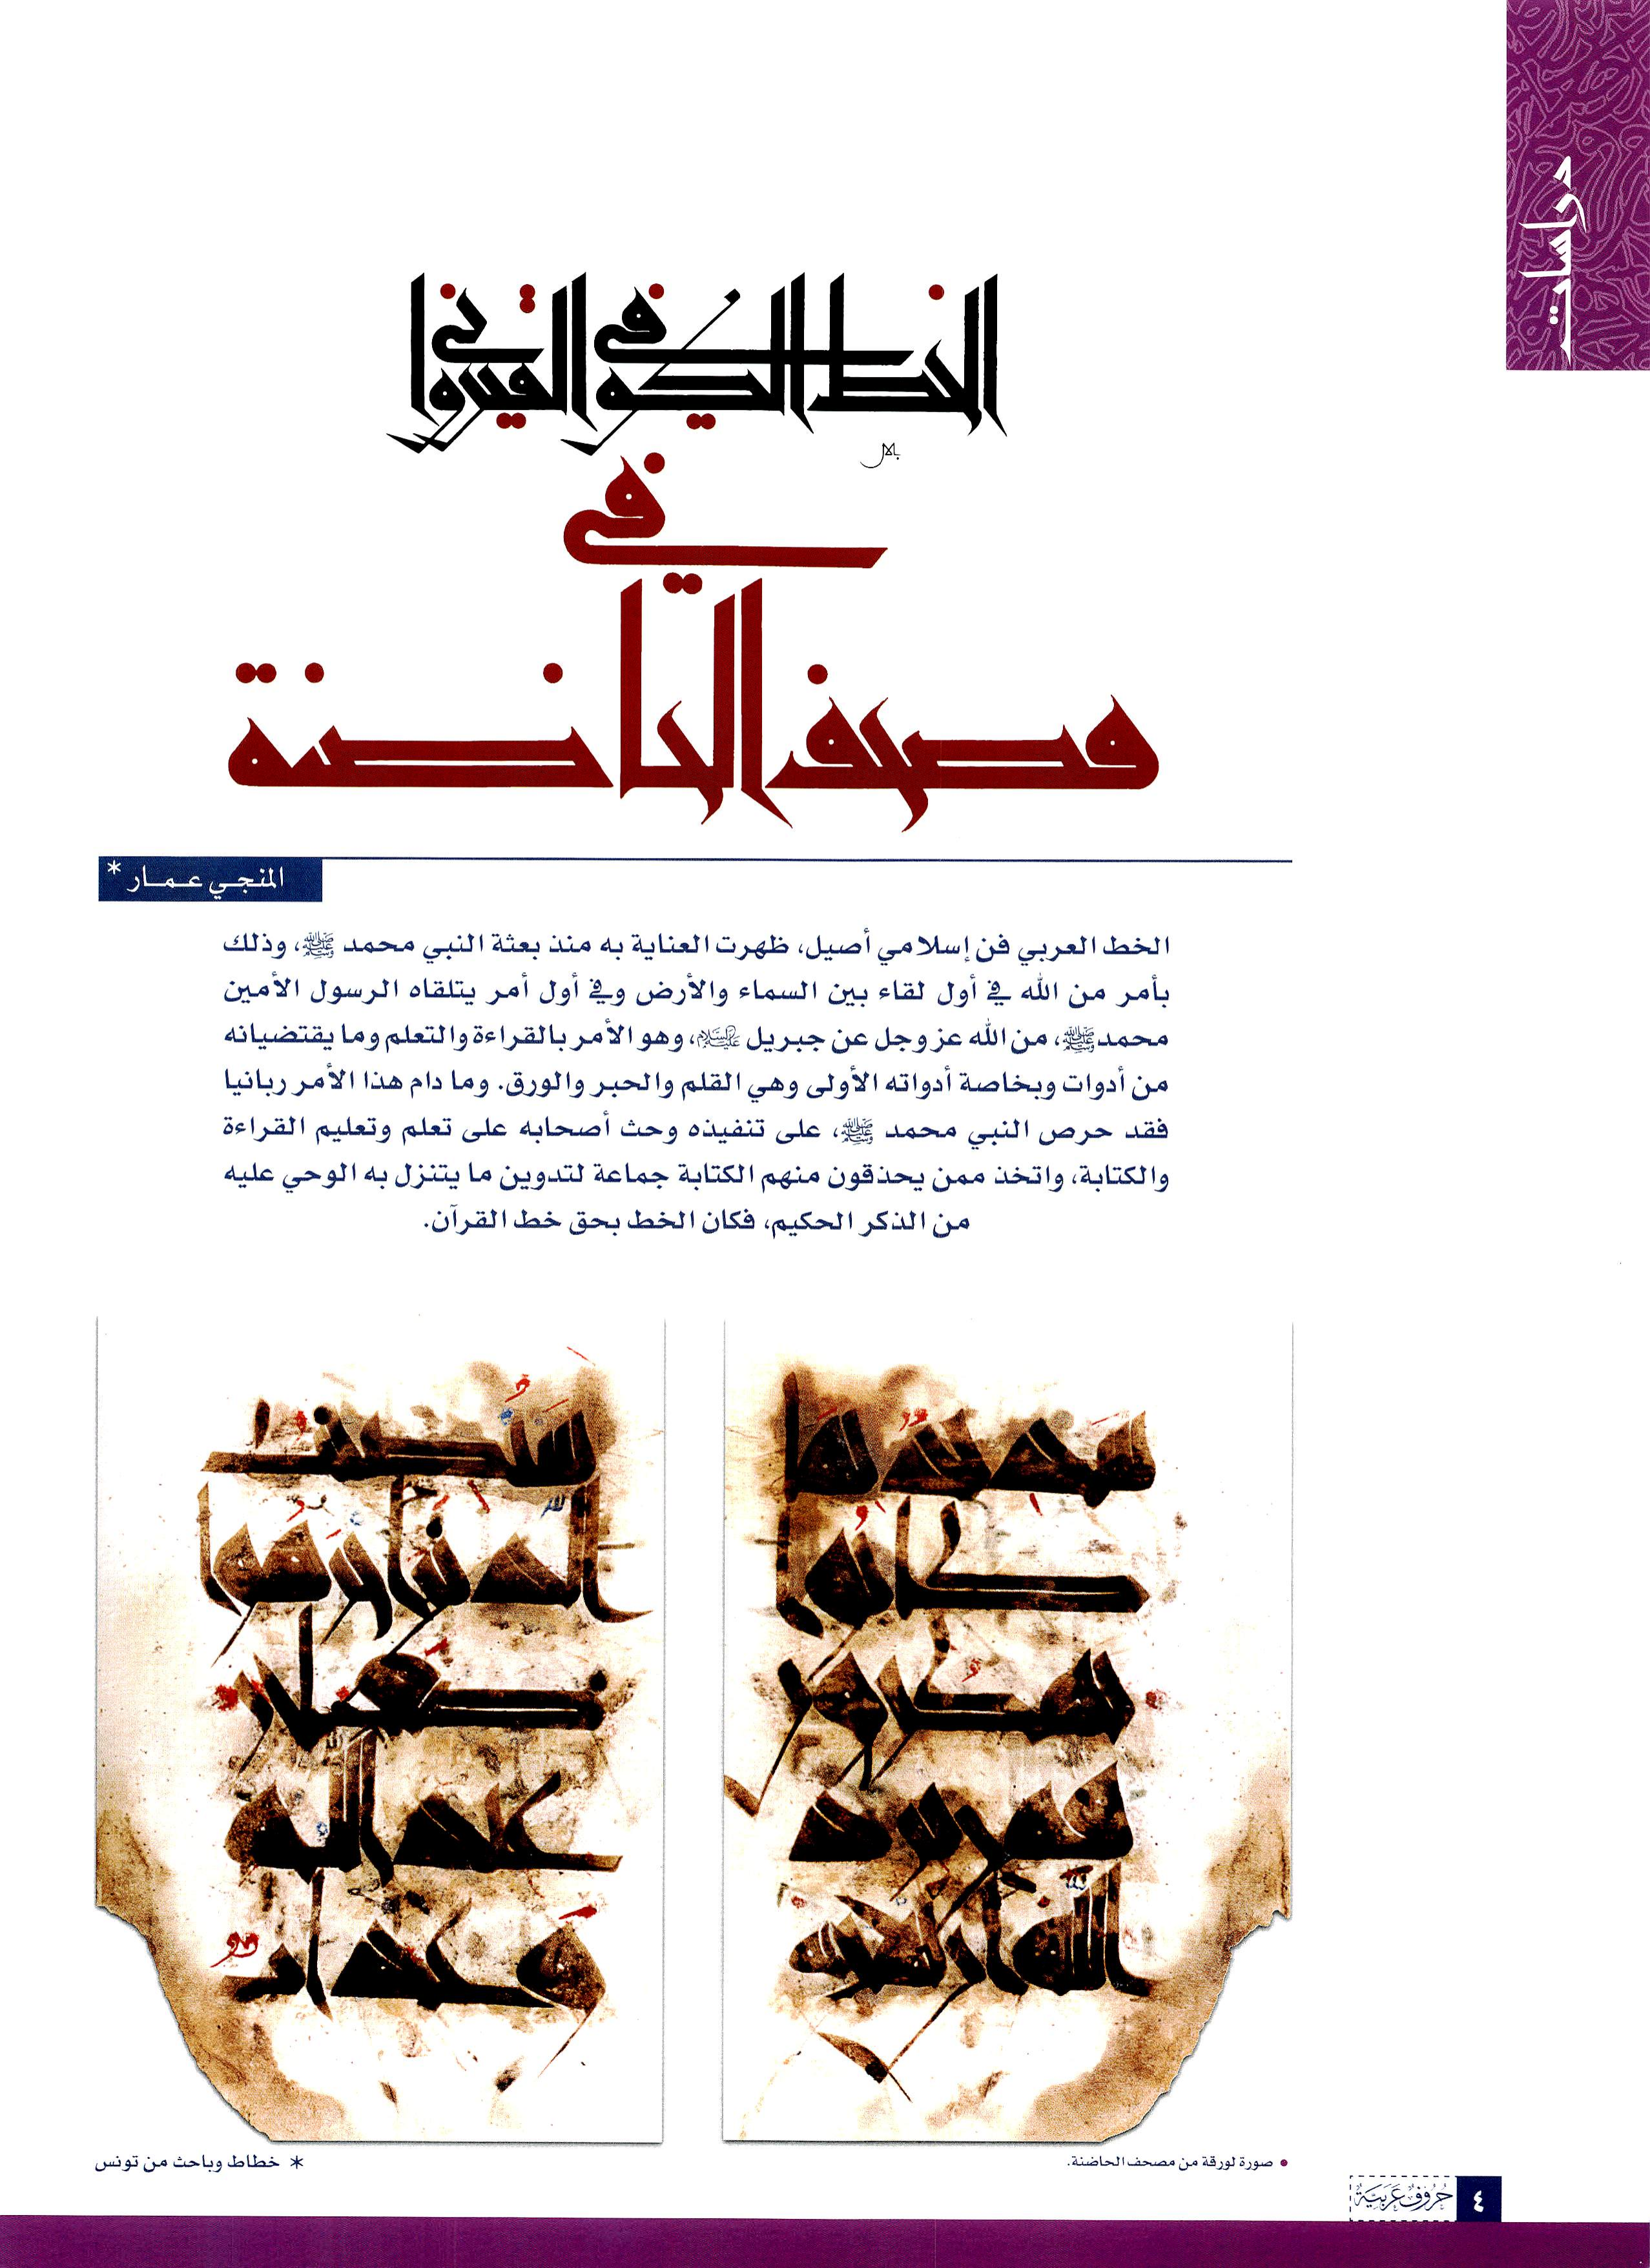 دراسات
الخط الكوفي القيرواني
بلال
في
مصحف الحاضنة
المنجي عمار *
الخط العربي فن إسلامي أصيل، ظهرت العناية به منذ بعثة النبي محمد ﷺ، وذلك
بأمر من الله في أول لقاء بين السماء والأرض وفي أول أمر يتلقاه الرسول الأمين
محمد ﷺ، من الله عز وجل عن جبريل عليه السلام، وهو الأمر بالقراءة والتعلم وما يقتضيانه
من أدوات وبخاصة أدواته الأولى وهي القلم والحبر والورق. وما دام هذا الأمر ربانيا
فقد حرص النبي محمد ﷺ، على تنفيذه وحث أصحابه على تعلم وتعليم القراءة
والكتابة، واتخذ ممن يحذقون منهم الكتابة جماعة لتدوين ما يتنزل به الوحي عليه
من الذكر الحكيم، فكان الخط بحق خط القرآن.
شديد بما
كانوا
يمكرون
فمن يرد
الله أن يهديه
سيصيب
الذين أجرموا
صغار
عند الله
وعذاب
• صورة لورقة من مصحف الحاضنة.
* خطاط وباحث من تونس
٤ حُرُوفٌ عَرَبِيَّةٌ